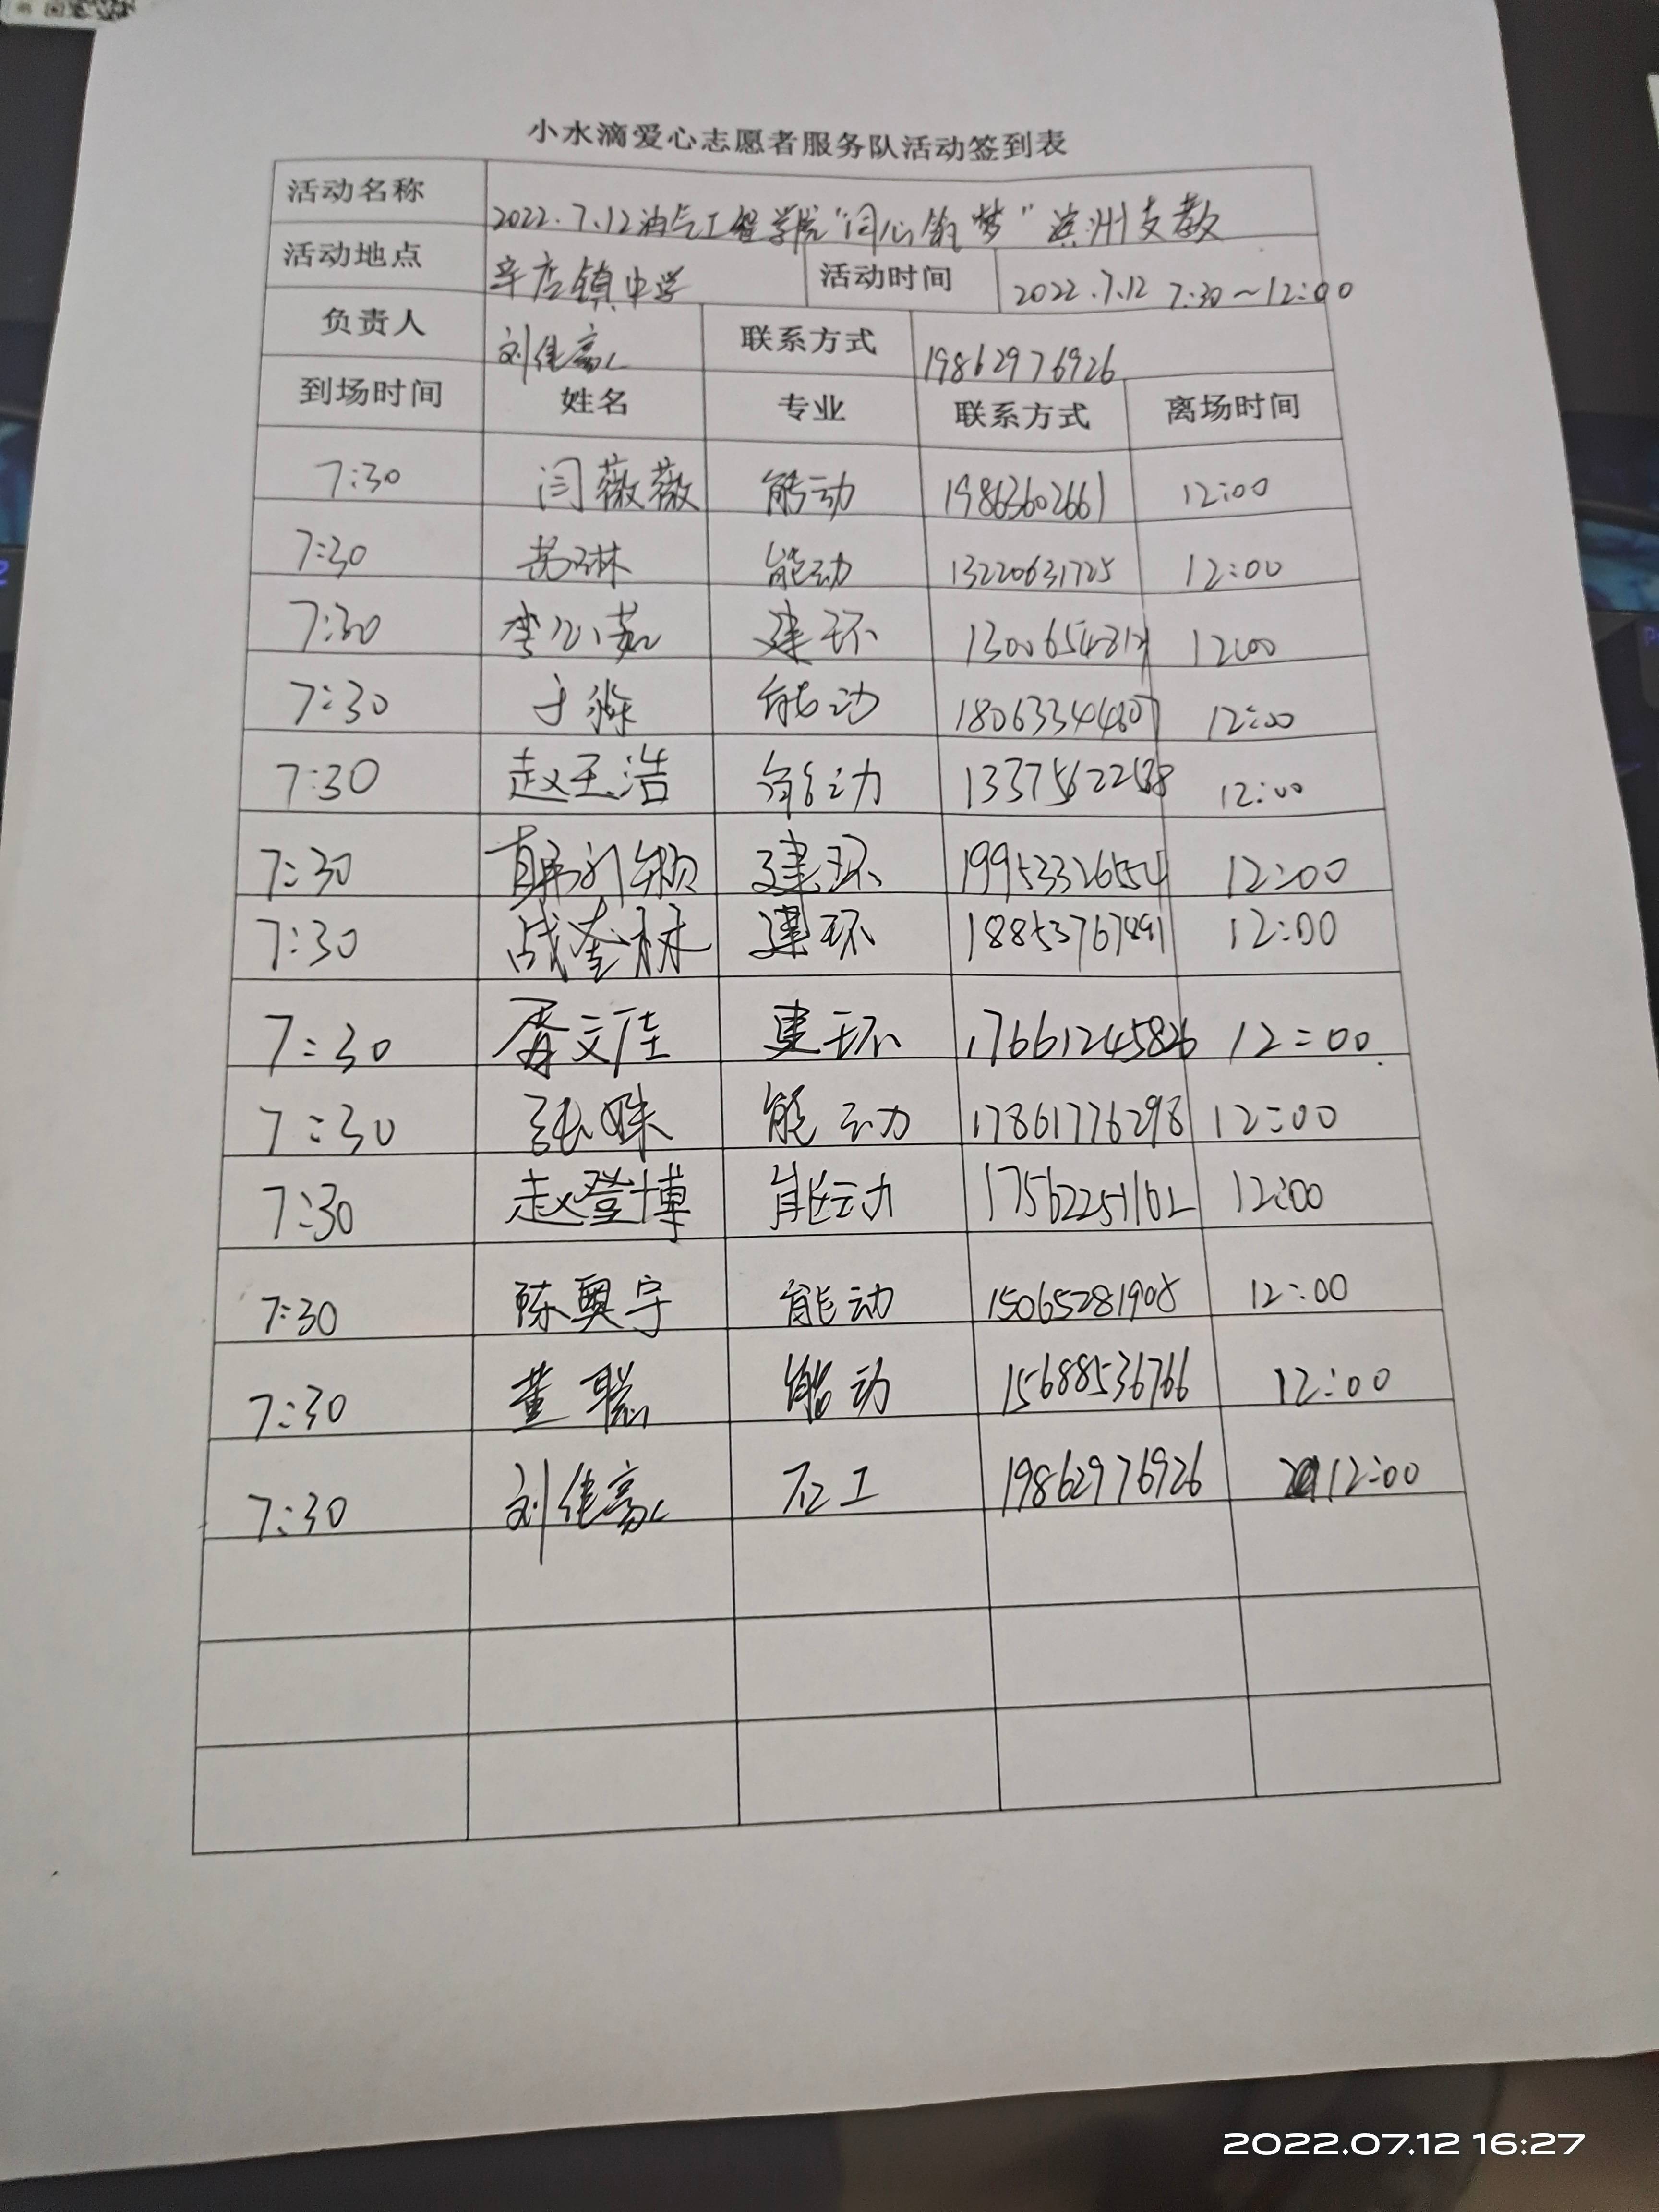 小水滴爱心志愿者服务队活动签到表
活动名称 2022.7.12油气工程学院“同心筑梦”滨州支教
活动地点 辛店镇中学 活动时间 2022.7.12 7:30~12:00
负责人 刘佳高 联系方式 19862976926
到场时间 姓名 专业 联系方式 离场时间
7:30 闫薇薇 能动 19863602661 12:00
7:30 能动 13220631725 12:00
7:30 李 建环 12:00
7:30 于 能动 12:00
7:30 赵玉浩 能动 12:00
7:30 建环 19953326554 12:00
7:30 战奎林 建环 12:00
7:30 胥文佳 建环 17661245826 12:00
7:30 张姝 能动 17861776298 12:00
7:30 赵登博 能动 17562251162 12:00
7:30 陈奥宇 能动 15065281908 12:00
7:30 董聪 能动 15688536766 12:00
7:30 刘佳高 石工 19862976926 12:00
2022.07.12 16:27